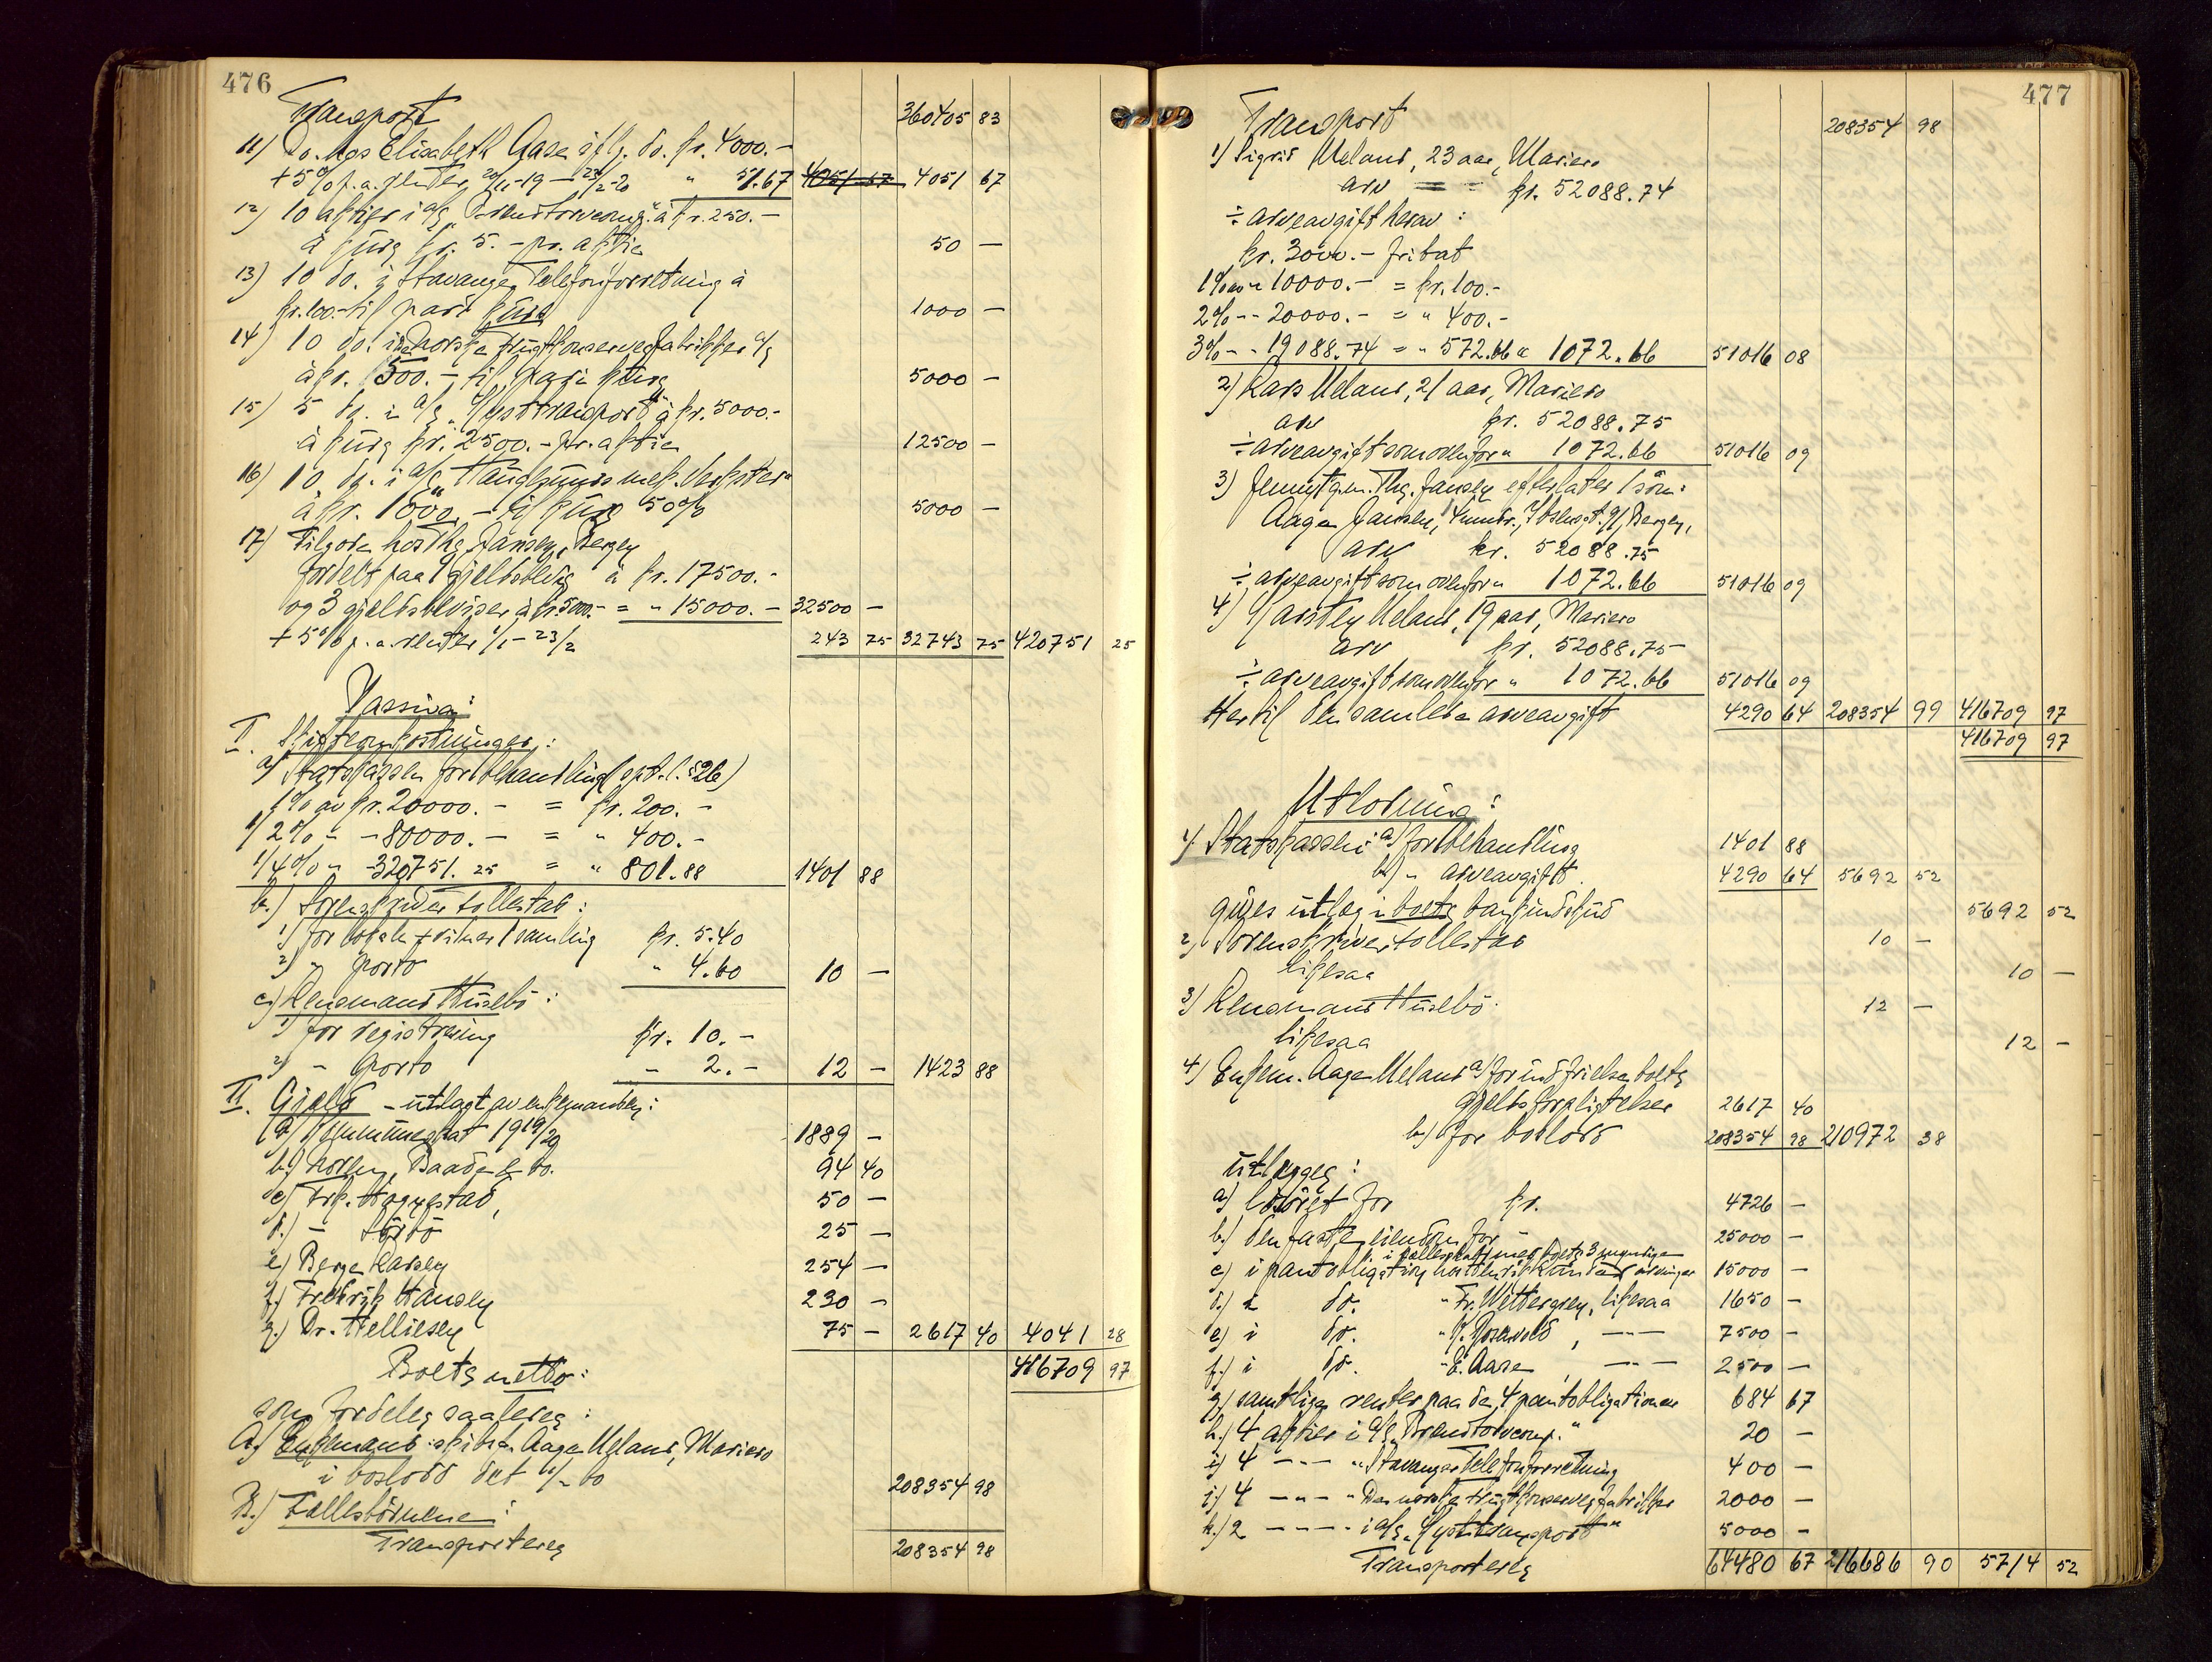 476
Transport 360405 83
11) Do. hos Elisabeth Aase iflg. do. kr. 4000.-
+ 5% p.a. renter 20/11-19 - 23/2-20 " 51.67 4051 67 4051 67
12) 10 aktier i a/s "Brendtorvcomp." à kr. 250.-
à kurs kr. 5.- pr. aktie 50 -
13) 10 do. i Stavanger Telefonforretning à
kr. 100.- til pari kurs 1000 -
14) 10 do. i De norske Frugtkonservesfabrikker a/s
à kr. 500.- til pari kurs 5000 -
15) 5 do. i a/s "Kysttransport" à kr. 5000.-
à kurs kr. 2500.- pr. aktie 12500 -
16) 10 do. i a/s "Haugesunds mek. Verksted"
à kr. 1000.- til kurs 50% 5000 -
17) Tilgode hos Thg. Jansen, Bergen
fordelt paa 1 gjeldsbevis à kr. 17500.-
og 3 gjeldsbeviser à kr. 5000.- = " 15000.- 32500 -
+ 5% p.a. renter 1/1 - 23/2 243 75 32743 75 420751 25
Passiva:
I. Skifteomkostninger:
a) Statskassen for behandling (sptl. l. § 26)
1% av kr. 20000.- = kr. 200.-
1/2% " - 80000.- = " 400.-
1/4% " - 320751.25 = " 801.88 1401 88
b.) Sorenskriver Tollestad:
1) for lokale + vidner 1 samling kr. 5.40
2) " porto " 4.60 10 -
c) Lensmand Huslebø:
1) for registrering kr. 10.-
2) " porto " 2.- 12 - 1423 88
II. Gjeld - utlagt av enkemanden:
a) Kommuneskat 1919/20 1889 -
b.) Norsen, Baade & Co. 94 40
c) Frk. Hognestad, 50 -
d.) - Førde 25 -
e) Berge Larsen 254 -
f.) Fredrik Hansen 230 -
g.) Dr. Helliesen 75 - 2617 40 4041 28
Boets netto: 416709 97
som fordeles saaledes:
A.) Enkemand skibsr. Aage Meland, Mariero
i boslodd det 1/2 bo 208354 98
B.) Fællesbørnene:
Transporteres 208354 98
477
Transport 208354 98
1) Sigrid Meland, 23 aar, Mariero
arv = - kr. 52088.74
÷ arveavgift herav:
kr. 3000.- fribat
1% av " 10000.- = kr. 100.-
2% - - 20000.- = " 400.-
3% - - 19088.74 = " 572.66 " 1072.66 51016 08
2) Lars Meland, 21 aar, Mariero
arv kr. 52088.75
÷ arveavgift som ovenfor " 1072.66 51016 09
3) Jenny g.m. Thg. Jansen efterlater 1 søn:
Aage Jansen, 4 mndr., Bergen,
arv kr. 52088.75
÷ arveavgift som ovenfor " 1072.66 51016 09
4) Karsten Meland, 19 aar, Mariero
arv kr. 52088.75
÷ arveavgift som ovenfor " 1072.66 51016 09
Hertil den samlede arveavgift 4290 64 208354 99 416709 97
416709 97
Utlodning:
1) Statskassen: a) for behandling 1401 88
b) " arveavgift 4290 64 5692 52
gives utlæg i boets bankindskud 5692 52
2) Sorenskriver Tollestad 10 -
likesaa 10 -
3) Lensmand Huslebø: 12 -
likesaa 12 -
4) Enkem. Aage Meland a) for indfrielse boets
gjeldsforpligtelser 2617 40
b) for boslodd 208354 98 210972 38
utlægges:
a) løsøret for kr. 4726 -
b.) den faste eiendom for - 25000 -
i fællesskap med boets 3 myndige
c) i pantobligation hos arvinger 15000 -
d.) i do. " Fr. Wettergren, likesaa 1650 -
e) i do. " K. Rosseved, -"- 7500 -
f.) i do. " E. Aase, -"- 2500 -
g) samtlige renter paa de 4 pantobligationer 684 67
h.) 4 aktier i a/s "Brendtorvcomp." 20 -
i) 4 - " - " Stavanger Telefonforretning 400 -
j.) 4 - " - " De norske Frugtkonservesfabrikker 2000 -
k.) 2 - " - i a/s "Kysttransport" 5000 -
Transporteres 64480 67 216686 90 5714 52